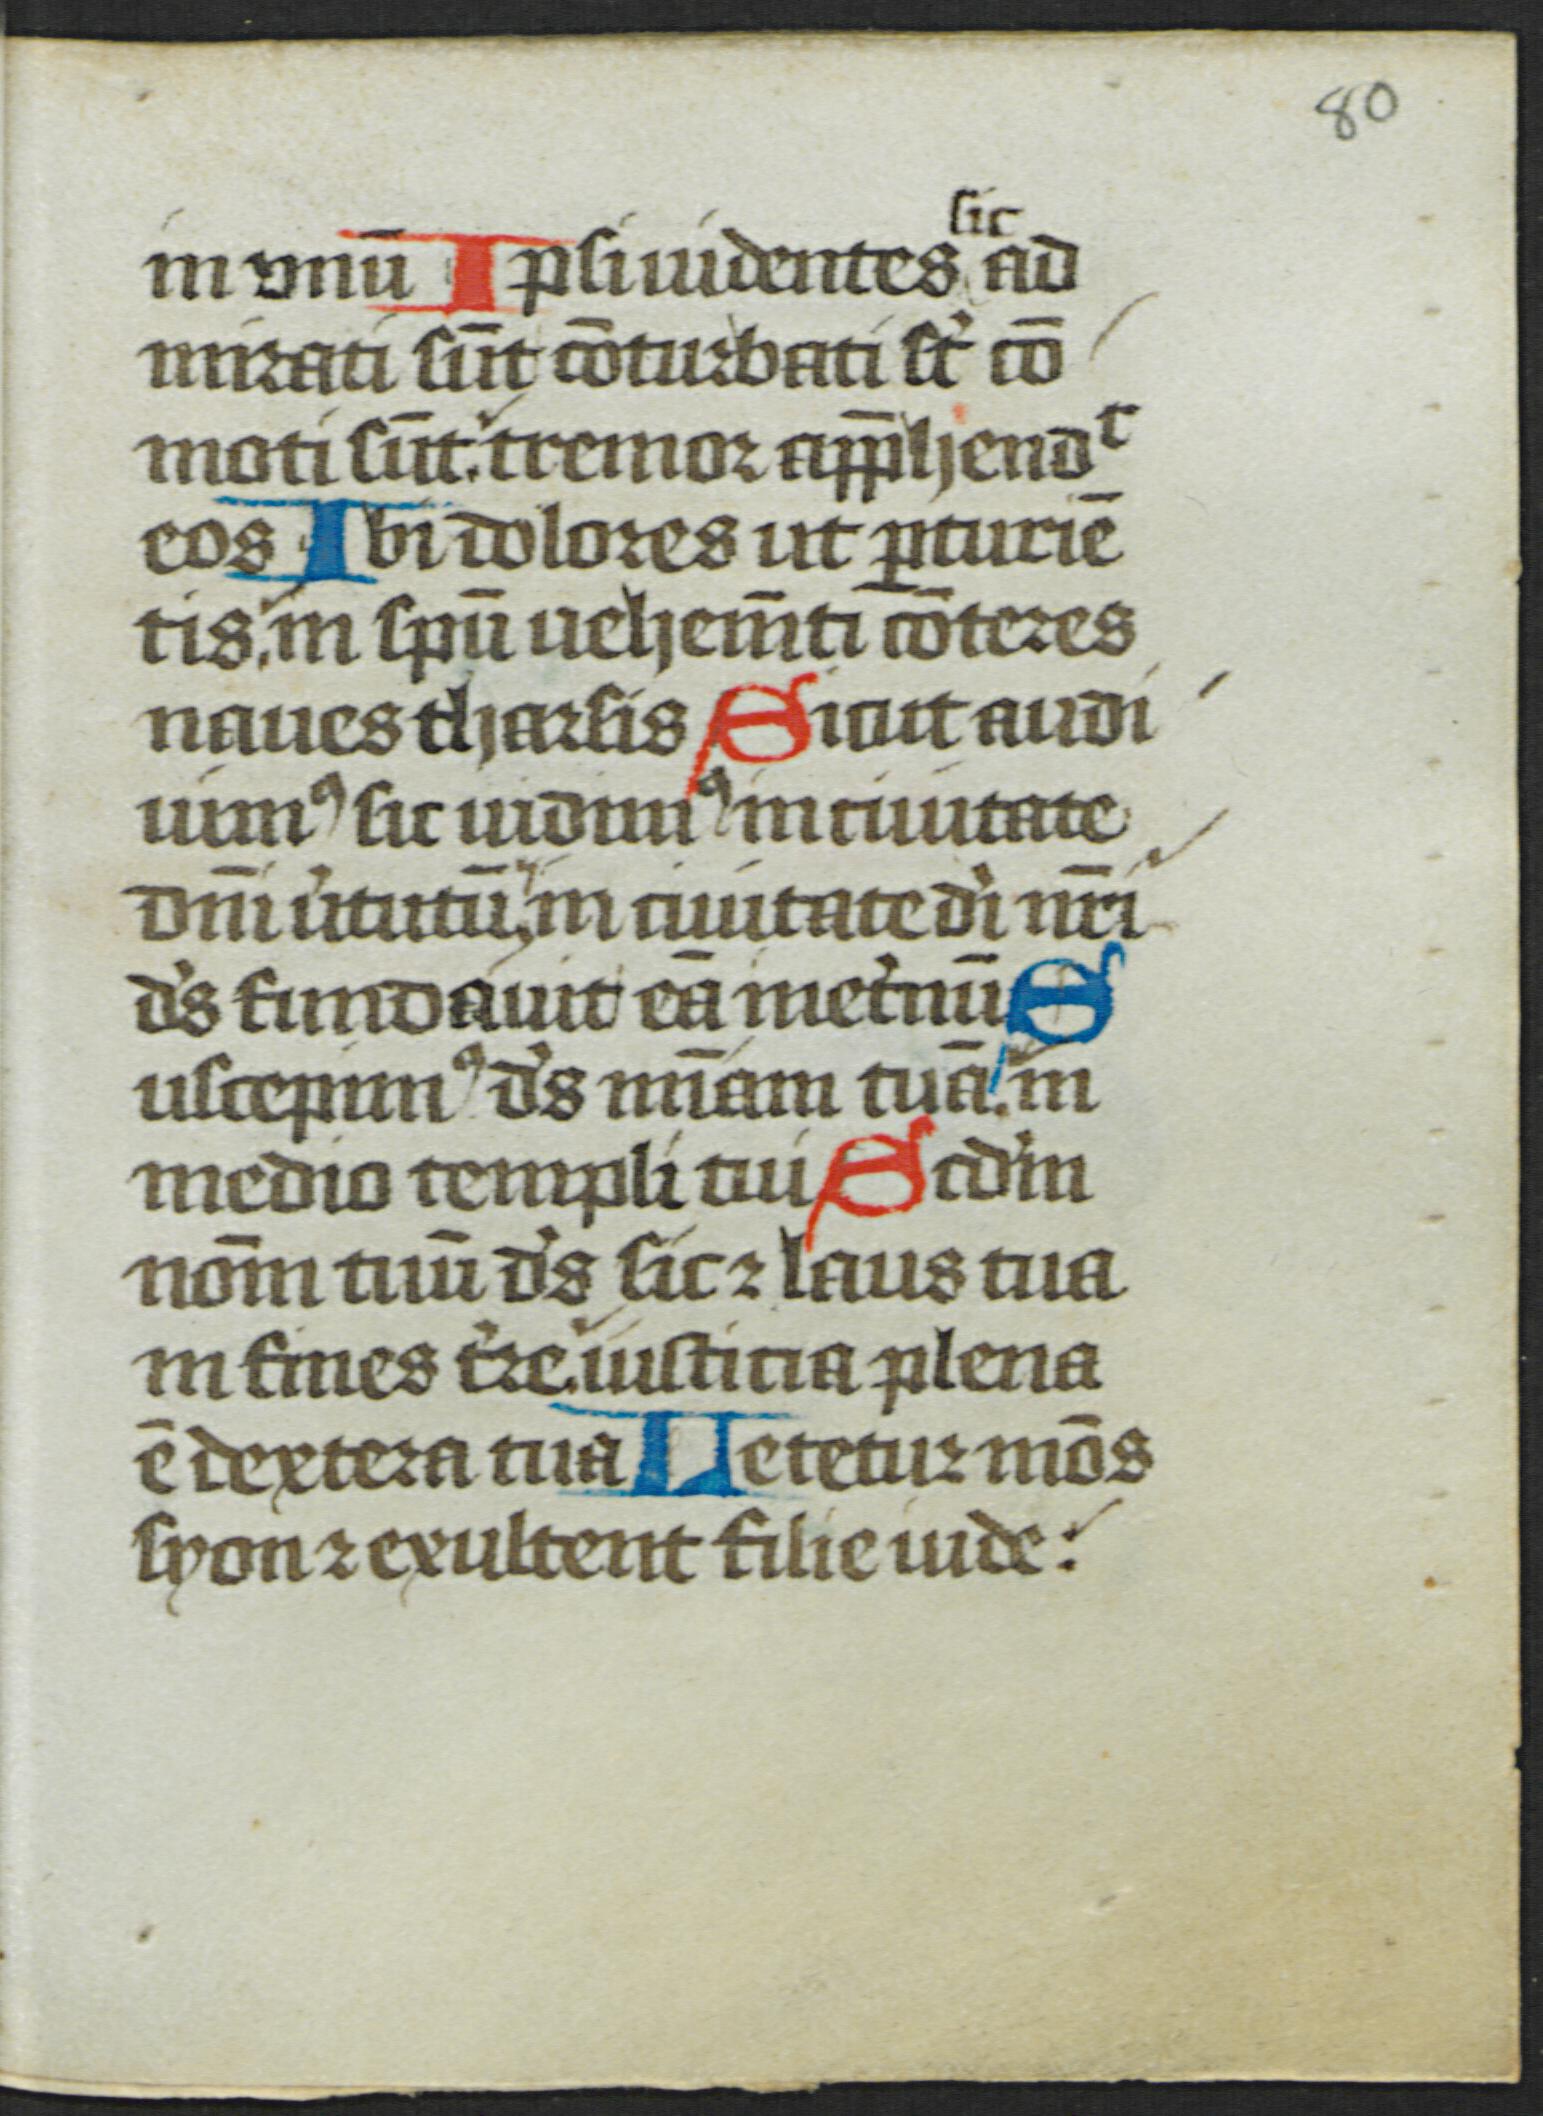 80
sic
in vnū Ipsi uidentes ad
mirati sūt cōturbati st̾ cō
moti sūt. tremor app̄hendt
eos Ibi dolores ut ꝑturiē
tis. in spū uehem̄ti cōteres
naues tharsis Sicut audi
uimꝰ sic uidimꝰ in ciuitate
dn̄i u̾tutū, in ciuitate di̾ nr̄i
ds̾ fundauit eā inet̾nū S
uscepimꝰ ds̾ mīam tuā. in
medio templi tui Scd̾m
nōm tuū ds̾ sic ⁊ laus tua
in fines t̾re. iusticia plena
ē dextera tua Letetur mōs
syon ⁊ exultent filie iude: